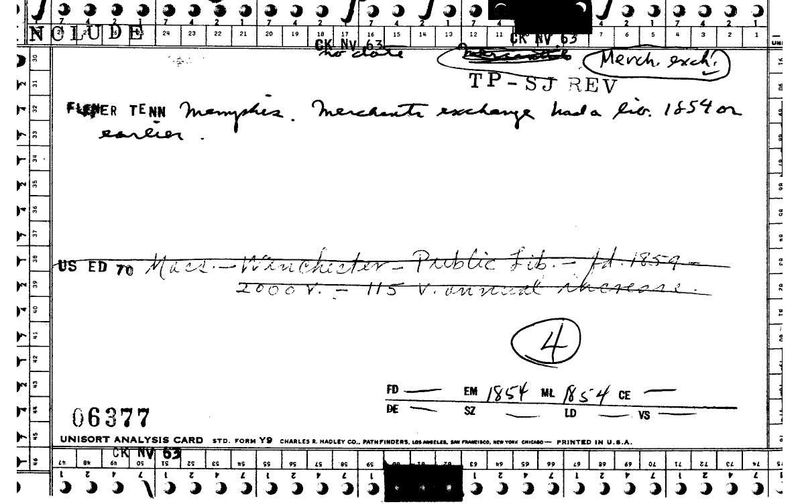 INCLUDE
CK NV 63
CK NV 63
no date
Merch. exch.
TP-SJ REV
TENN Memphis. Merchants exchange had a lib. 1854 or
earlier.
US ED 70 Mass.-Winchester-Public Lib.-fd.1859-
2000 v. - 115 v. annual increase.
4
FD — EM 1854 ML 1854 CE —
DE — SZ — LD — VS —
06377
UNISORT ANALYSIS CARD STD. FORM Y9 CHARLES R. HADLEY CO., PATHFINDERS, LOS ANGELES, SAN FRANCISCO, NEW YORK CHICAGO — PRINTED IN U.S.A.
CK NV 63